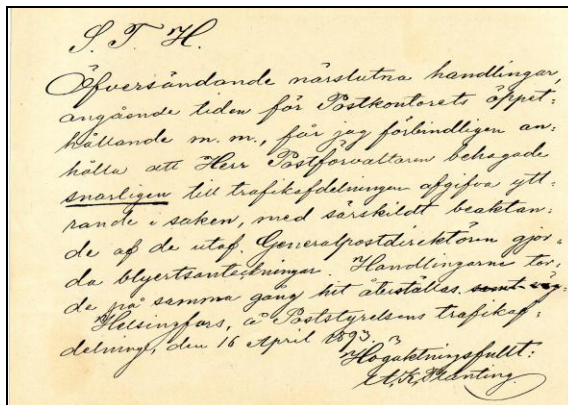 S. T. H.
Öfversändande närslutna handlingar,
angående tiden för Postkontorets öppet-
hållande m. m., får jag förbindligen an-
hålla att Herr Postförvaltaren behagade
snarligen till trafikafdelningen afgifva ytt-
rande i saken, med särskildt beaktan-
de af de utaf Generalpostdirektören gjor-
da blyertsanteckningar. Handlingarne tor-
de på samma gång hit återställas.
Helsingfors, å Poststyrelsens trafikaf-
delning, den 16 April 1893.
Högaktningsfullt:
A. K. Planting.